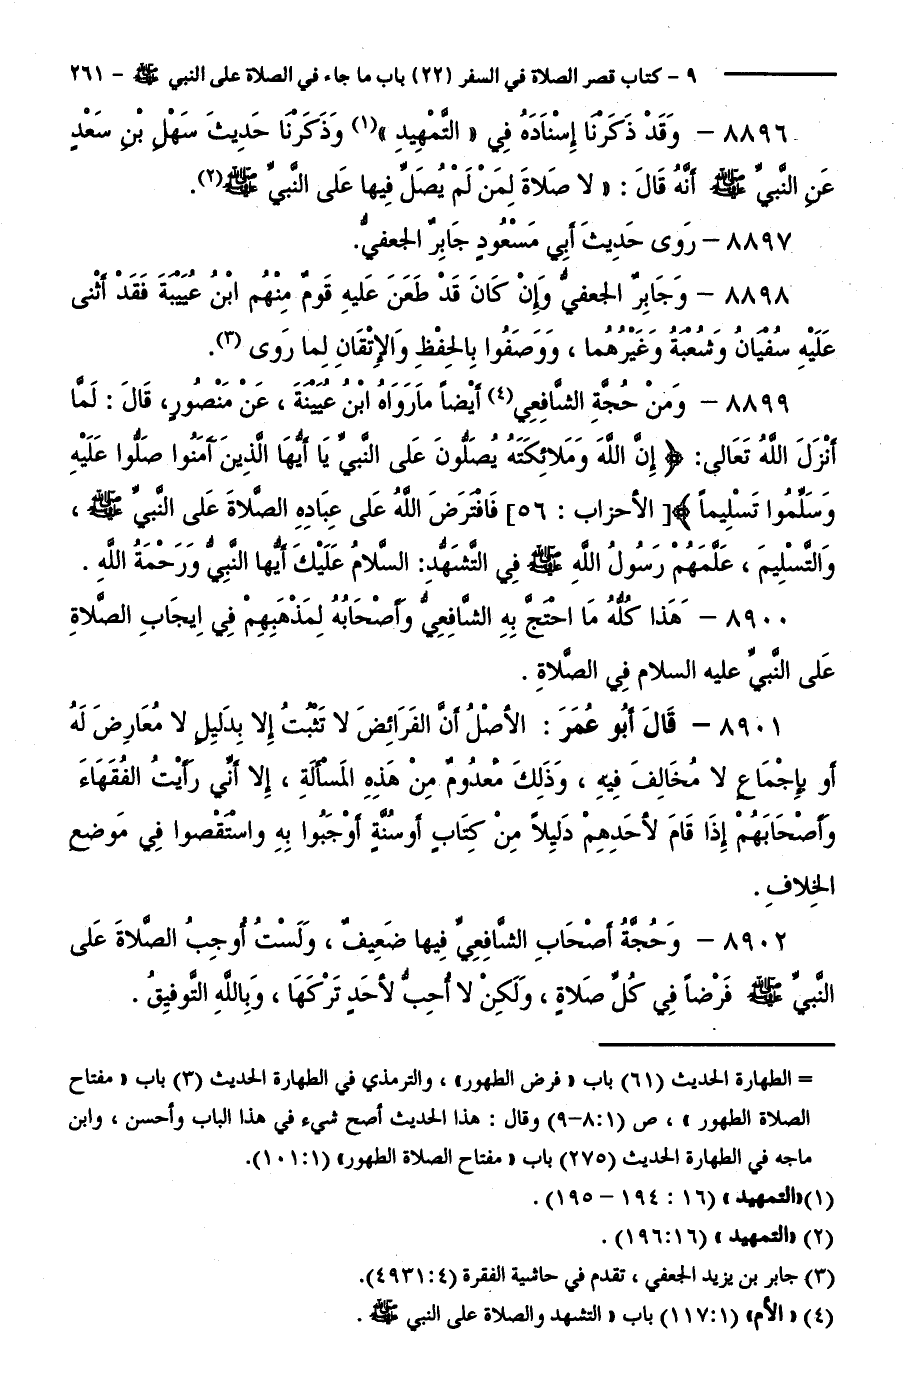 ٩ - كتاب قصر الصلاة في السفر (٢٢) باب ما جاء في الصلاة على النبي ﷺ - ٢٦١
٨٨٩٦ - وَقَدْ ذَكَرْنَا إِسْنَادَهُ فِي « التَّمْهِيدِ »(١) وَذَكَرْنَا حَدِيثَ سَهْلِ بْنِ سَعْدٍ
عَنِ النَّبِيِّ ﷺ أَنَّهُ قَالَ : « لا صَلاةَ لِمَنْ لَمْ يُصَلِّ فِيها عَلى النَّبِيِّ ﷺ(٢).
٨٨٩٧ - رَوَى حَدِيثَ أَبِي مَسْعُودٍ جَابِرٌ الجعفيُّ.
٨٨٩٨ - وَجَابِرٌ الجعفيُّ وَإِنْ كَانَ قَدْ طَعَنَ عَليهِ قَومٌ مِنْهُم ابْنُ عُيَيْنَةَ فَقَدْ أَثْنى
عَلَيْهِ سُفْيَانُ وَشُعْبَةُ وَغَيْرُهُما ، وَوَصَفُوا بِالحِفْظِ وَالإِتْقَانِ لِما رَوى (٣).
٨٨٩٩ - وَمِنْ حُجَّةِ الشَّافِعِي(٤) أَيْضاً مارَوَاهُ ابْنُ عُيَيْنَةَ ، عَنْ مَنْصُورٍ، قَالَ : لَمَّا
أَنْزَلَ اللَّهُ تَعَالى: ﴿ إِنَّ اللَّهَ وَمَلَائِكَتَهُ يُصَلُّونَ عَلى النَّبِيِّ يَا أَيُّهَا الَّذِينَ آمَنُوا صَلُّوا عَلَيْهِ
وَسَلِّمُوا تَسْلِيماً ﴾[ الأحزاب : ٥٦] فَافْتَرَضَ اللَّهُ عَلى عِبَادِهِ الصَّلاةَ عَلى النَّبِيِّ ﷺ ،
وَالتَّسْلِيمَ ، عَلَّمَهُمْ رَسُولُ اللَّهِ ﷺ فِي التَّشَهُّدِ: السَّلامُ عَلَيْكَ أَيُّها النَّبِيُّ وَرَحْمَةُ اللَّهِ .
٨٩٠٠ - هَذَا كُلُّهُ مَا احْتَجَّ بِهِ الشَّافِعِيُّ وَأَصْحَابُهُ لِمَذْهَبِهِمْ فِي إِيجَابِ الصَّلاةِ
عَلى النَّبِيِّ عليه السلام فِي الصَّلاةِ .
٨٩٠١ - قَالَ أَبُو عُمَرَ : الأصْلُ أَنَّ الفَرَائِضَ لا تَثْبُتُ إِلا بِدَلِيلٍ لا مُعَارِضَ لَهُ
أو بِإِجْمَاعٍ لا مُخَالِفَ فِيهِ ، وَذَلِكَ مَعْدُومٌ مِنْ هَذِهِ المَسْأَلَةِ ، إِلا أَنِّي رَأَيْتُ الفُقَهَاءَ
وَأَصْحَابَهُمْ إِذَا قَامَ لأَحَدِهِمْ دَلِيلاً مِنْ كِتَابٍ أو سُنَّةٍ أَوْجَبُوا بِهِ واسْتَقْصوا فِي مَوضعِ
الخِلافِ .
٨٩٠٢ - وَحُجَّةُ أَصْحَابِ الشَّافِعِيِّ فِيها ضَعِيفٌ ، وَلَسْتُ أُوجِبُ الصَّلاةَ عَلى
النَّبِيِّ ﷺ فَرْضاً فِي كُلِّ صَلاةٍ ، وَلَكِنْ لا أُحِبُّ لأَحَدٍ تَرْكَهَا ، وَبِاللَّهِ التَّوفِيقُ .
= الطهارة الحديث (٦١) باب « فرض الطهور» ، والترمذي في الطهارة الحديث (٣) باب « مفتاح
الصلاة الطهور » ، ص (١:٨-٩) وقال : هذا الحديث أصح شيء في هذا الباب وأحسن ، وابن
ماجه في الطهارة الحديث (٢٧٥) باب « مفتاح الصلاة الطهور» (١٠١:١).
(١)«التمهيد » (١٦ : ١٩٤ - ١٩٥) .
(٢) «التمهيد » (١٩٦:١٦) .
(٣) جابر بن يزيد الجعفي ، تقدم في حاشية الفقرة (٤٩٣١:٤).
(٤) « الأم» (١١٧:١) باب « التشهد والصلاة على النبي ﷺ .